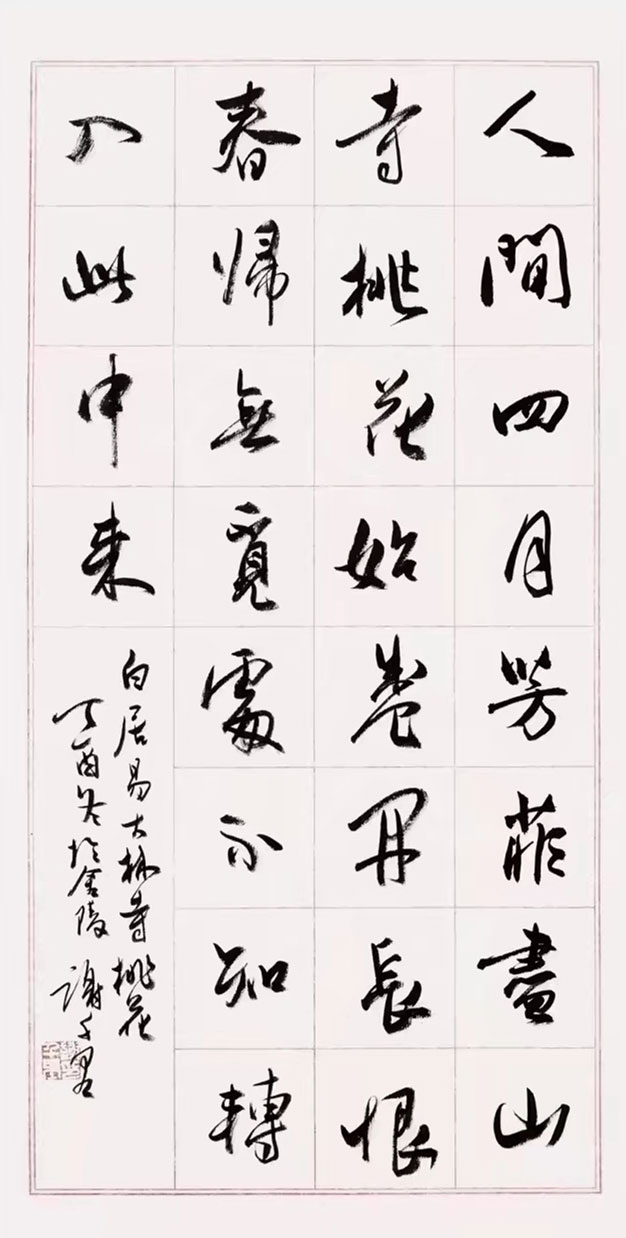 人間四月芳菲盡山
寺桃花始盛開長恨
春歸無覓處不知轉
入此中来
白居易大林寺桃花
丁酉冬於金陵 謝